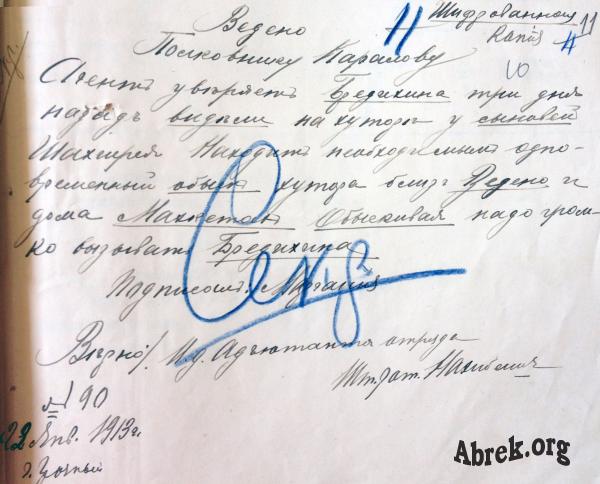 Ведено 11 Шифрованная 11
Полковнику Каралову 10
Агентъ увѣряетъ Бредихина три дня
назадъ видѣли на хуторѣ у сыновей
Шахгирея Находитъ необходимымъ одно-
временный обыскъ хутора близъ Ведено и
дома Махкетахъ Обыскивая надо гром-
ко вызывать Бредихина
Подписалъ:
Вѣрно! И.д. Адъютанта отряда
Шт. рот.
№ 90
22 Янв. 1913 г.
г. Грозный
Abrek.org